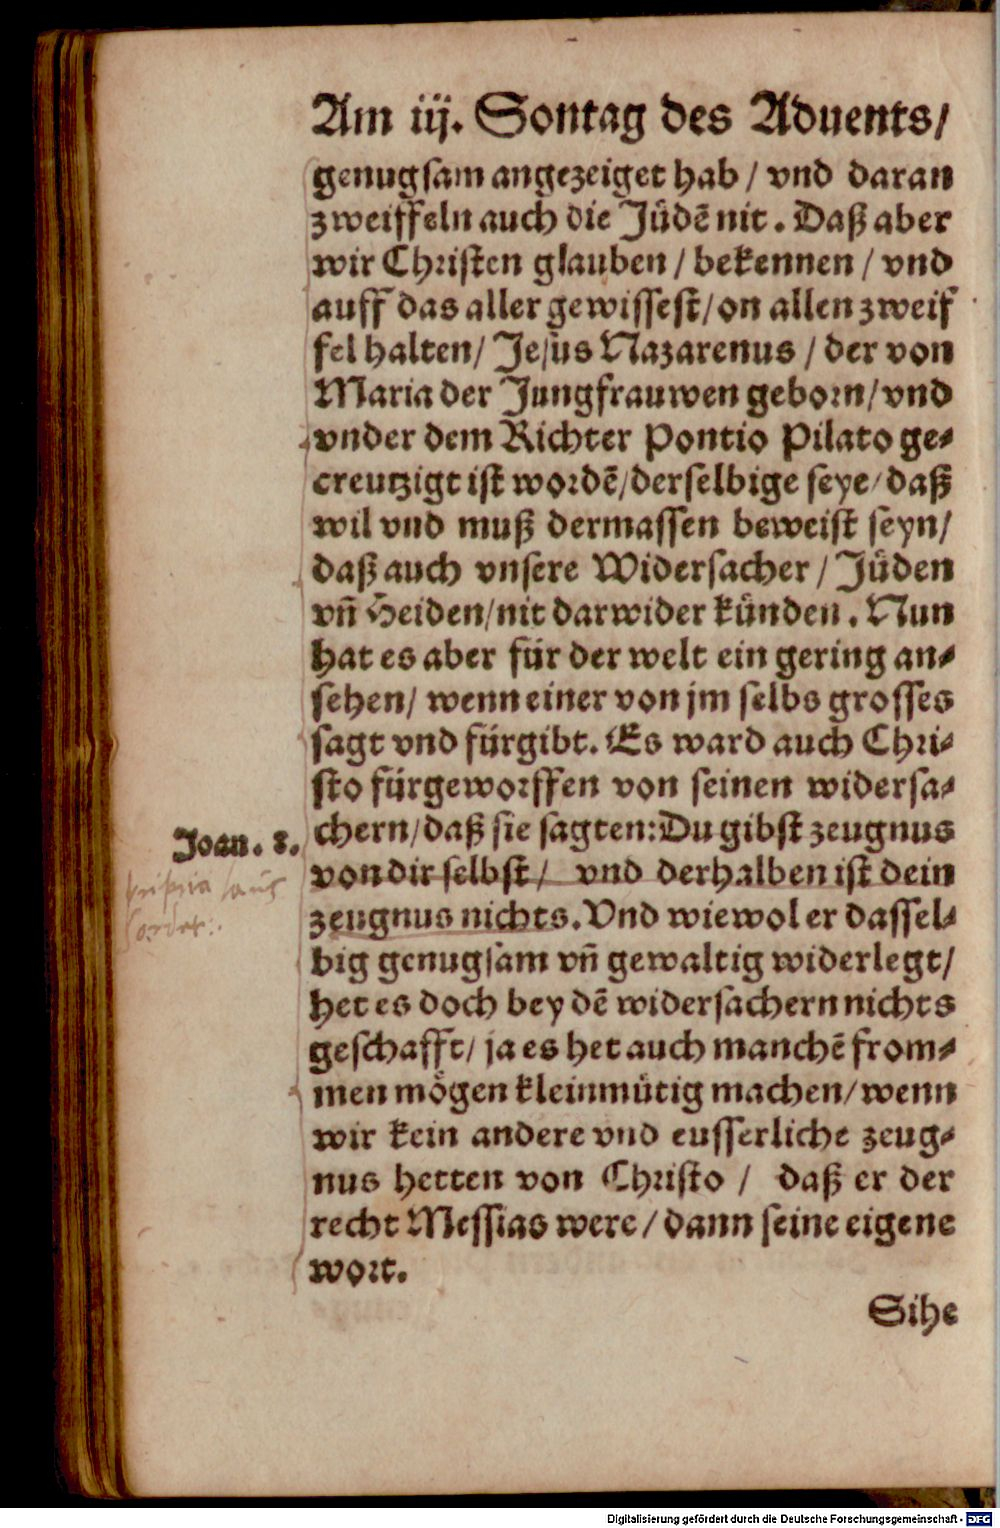 Am iij. Sontag des Aduents/
genugsam angezeiget hab / vnd daran
zweiffeln auch die Jüdẽ nit. Daß aber
wir Christen glauben / bekennen / vnd
auff das aller gewissest/ on allen zweif
fel halten/ Jesus Nazarenus / der von
Maria der Jungfrauwen geborn/ vnd
vnder dem Richter Pontio Pilato ge⸗
creutzigt ist wordẽ/ derselbige seye/ daß
wil vnd muß dermassen beweist seyn/
daß auch vnsere Widersacher / Jüden
vñ Heiden/ nit darwider künden. Nun
hat es aber für der welt ein gering an⸗
sehen/ wenn einer von jm selbs grosses
sagt vnd fürgibt. Es ward auch Chri⸗
sto fürgeworffen von seinen widersa⸗
chern/ daß sie sagten: Du gibst zeugnus
Joan. 8.
von dir selbst/ vnd derhalben ist dein
propria laus
sordet:.
zeugnus nichts. Vnd wiewol er dassel⸗
big genugsam vñ gewaltig widerlegt/
het es doch bey dẽ widersachern nichts
geschafft/ ja es het auch manchẽ from⸗
men mögen kleinmütig machen/ wenn
wir kein andere vnd eusserliche zeug⸗
nus hetten von Christo / daß er der
recht Messias were/ dann seine eigene
wort.
Sihe
Digitalisierung gefördert durch die Deutsche Forschungsgemeinschaft - DFG